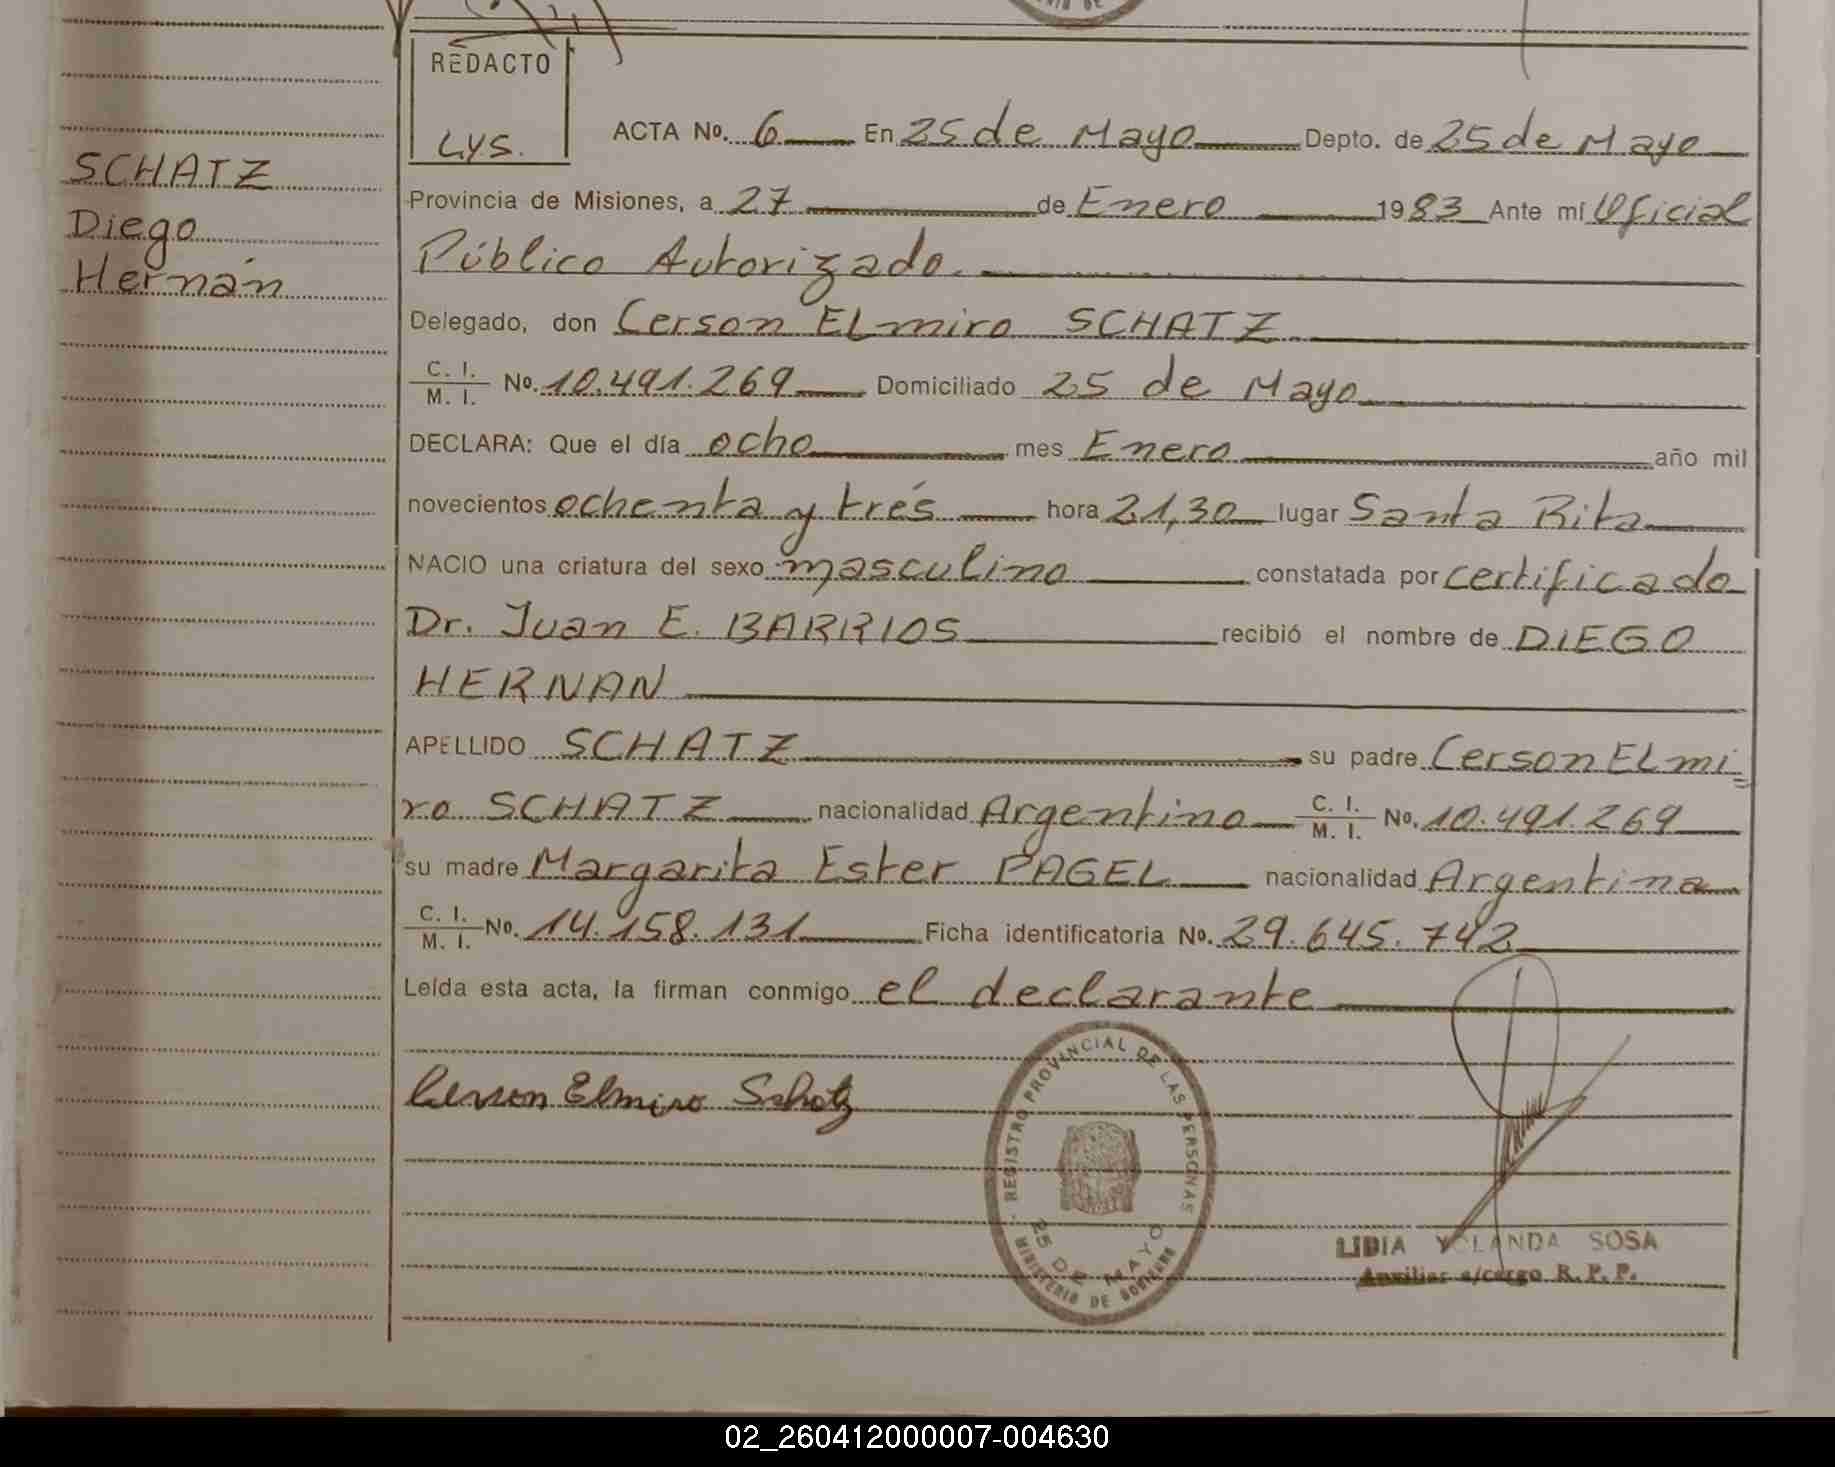 REDACTO
LYS.
SCHATZ
Diego
Hernán
ACTA No. 6 En 25 de Mayo Depto. de 25 de Mayo
Provincia de Misiones, a 27 de Enero 1983 Ante mí Oficial
Público Autorizado.
Delegado, don Cerson ELmiro SCHATZ.
C. I.
M. I. No. 10.491.269 Domiciliado 25 de Mayo
DECLARA: Que el día ocho mes Enero año mil
novecientos ochenta y trés hora 21,30 lugar Santa Rita
NACIO una criatura del sexo masculino constatada por certificado
Dr. Juan E. BARRIOS recibió el nombre de DIEGO
HERNAN
APELLIDO SCHATZ su padre Cerson ELmi=
ro SCHATZ nacionalidad Argentino C. I. M. I. No. 10.491.269
su madre Margarita Ester PAGEL nacionalidad Argentina
C. I.
M. I. No. 14.158.131 Ficha identificatoria No. 29.645.742
Leída esta acta, la firman conmigo el declarante
Cerson Elmiro Schatz
REGISTRO PROVINCIAL DE LAS PERSONAS
25 DE MAYO
MINISTERIO DE GOBIERNO
LIDIA YOLANDA SOSA
Auxiliar a/cargo R. P. P.
02_260412000007-004630